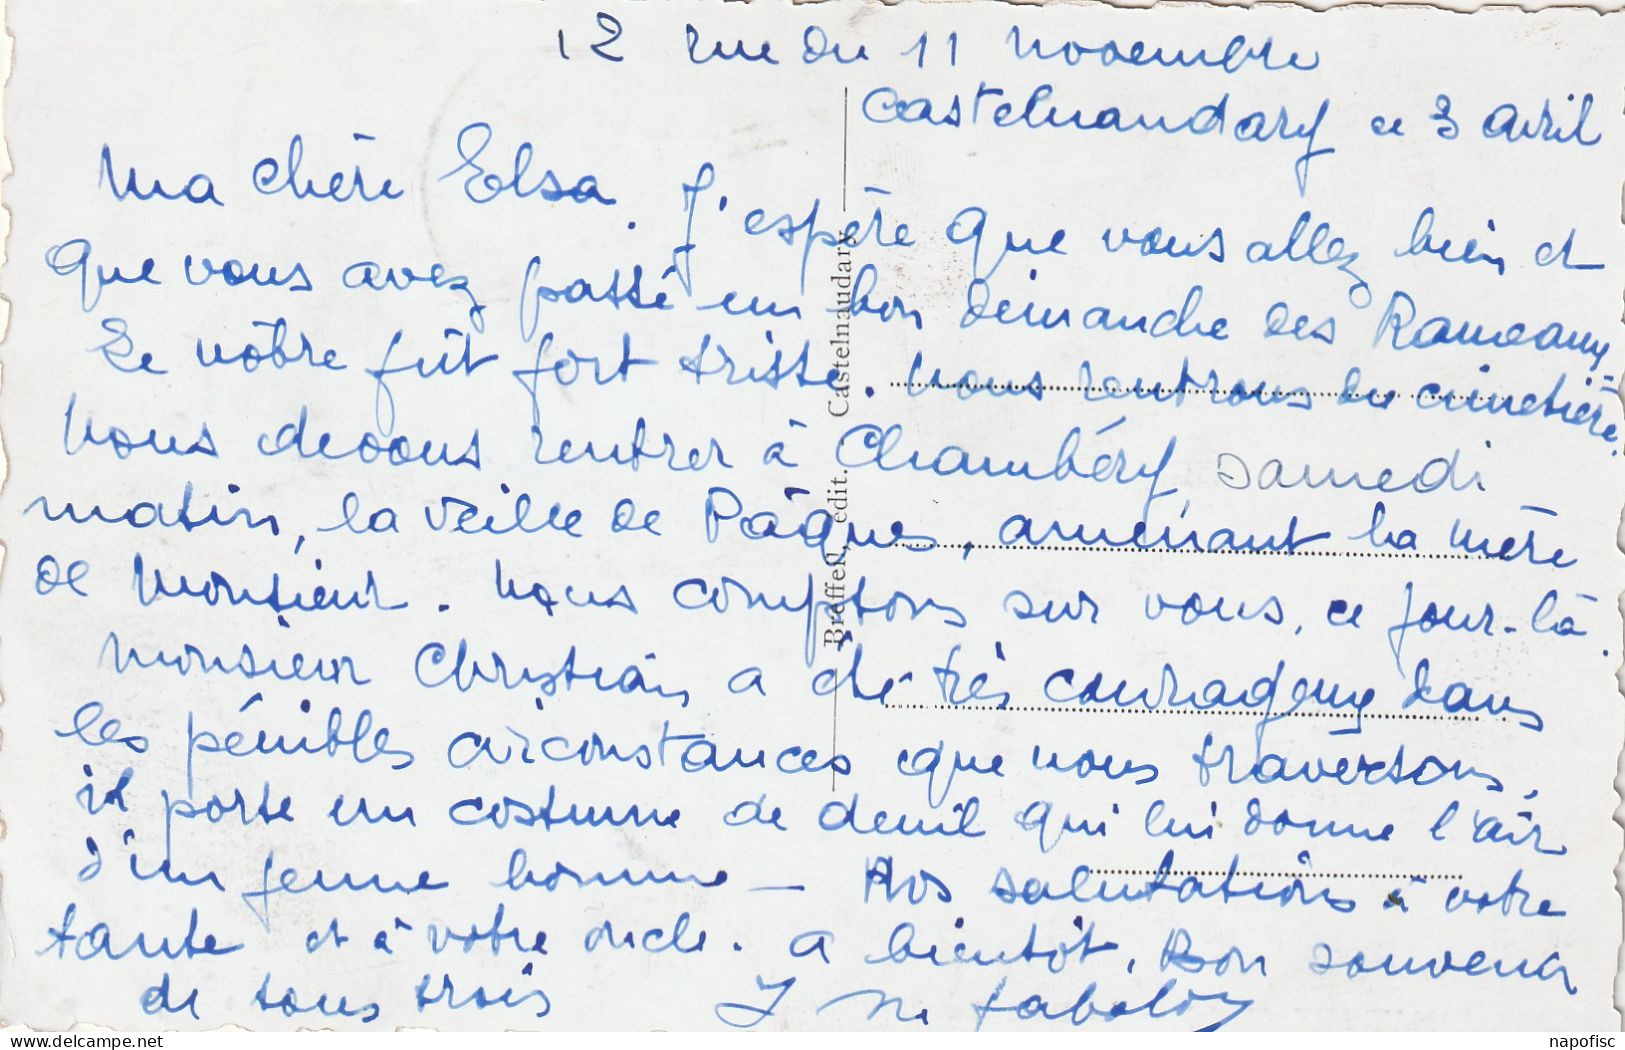 12 rue du 11 novembre
Castelnaudary ce 3 Avril
Ma chère Elsa. J'espère que vous allez bien et
que vous avez passé un bon dimanche des Rameaux.
Le nôtre fût fort triste. Nous rentrons du cimetière.
Nous devons rentrer à Chambéry, samedi
matin, la veille de Pâques, amenant la mère
de Monsieur. Nous comptons sur vous, ce jour-là.
Monsieur Christian a été très courageux dans
les pénibles circonstances que nous traversons,
il porte un costume de deuil qui lui donne l'air
d'un jeune homme — Nos salutations à votre
tante et à votre oncle. A bientôt, Bon souvenir
de tous trois
Breffeil, edit. Castelnaudary
delcampe.net
napofisc